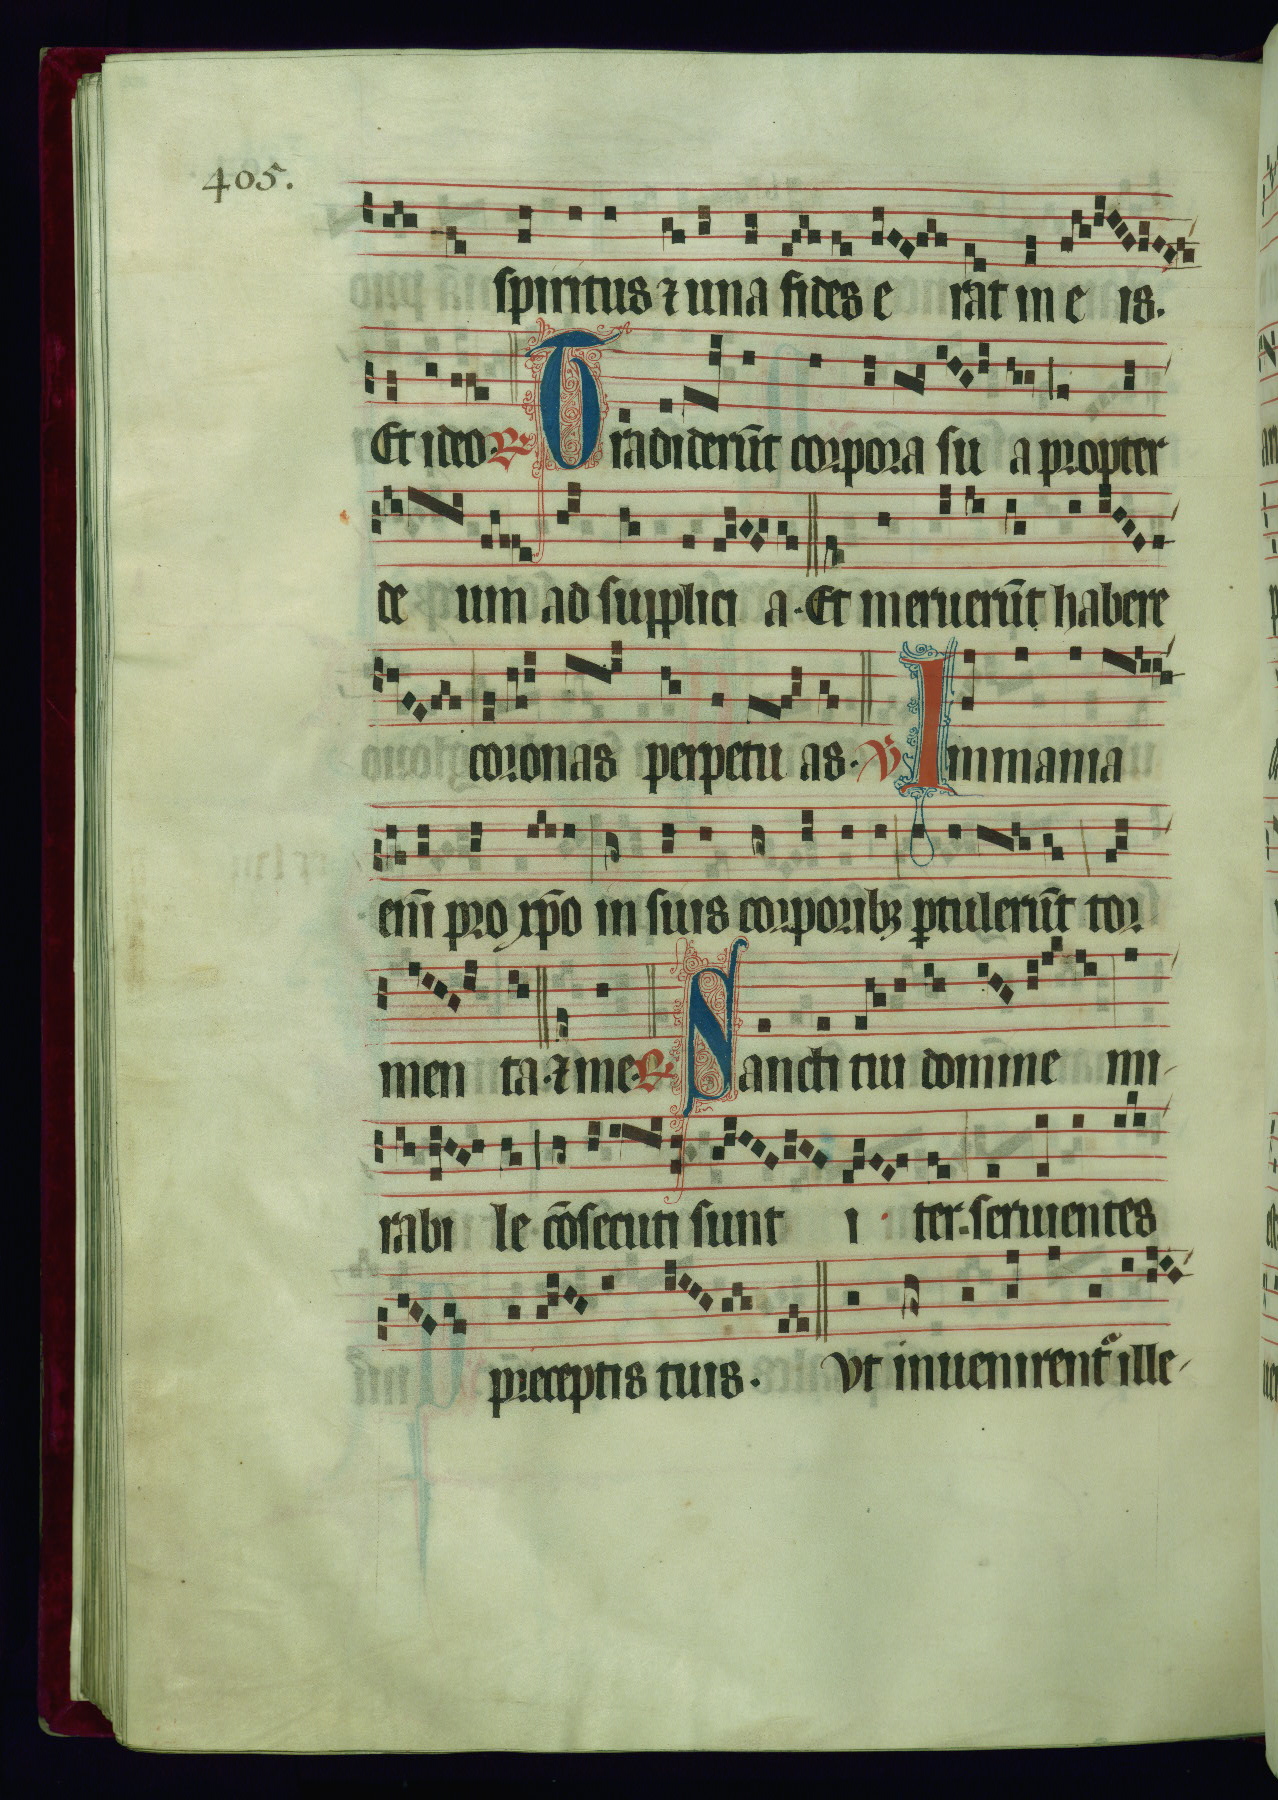 405.
spiritus ⁊ una fides e rat in e is.
Et ideo. ℟ Tradiderūt corpora su a propter
de um ad supplici a. Et meruerūt habere
coronas perpetu as. ℣ Immania
eni᷑ pro xp̄o in suis coꝛporibꝫ ꝑtulerūt tor
men ta. ⁊ me. ℟ Sancti tui domine mi-
rabi le cōsecuti sunt i ter. seruientes
preceptis tuis. Vt inuenirentᷣ ille-